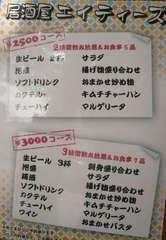 居酒屋エイティーズ
¥2500コース
2時間飲み放題&お食事5品
生ビール 2杯
焼酎
ソフトドリンク
カクテル
チューハイ
サラダ
揚げ物盛り合わせ
おまかせ炒め物
キムチチャーハン
マルゲリータ
¥3000コース
3時間飲み放題&お食事7品
生ビール 3杯
焼酎
ソフトドリンク
カクテル
チューハイ
ワイン
刺身盛り合わせ
サラダ
揚げ物盛り合わせ
おまかせ炒め物
キムチチャーハン
マルゲリータ
おまかせパスタ